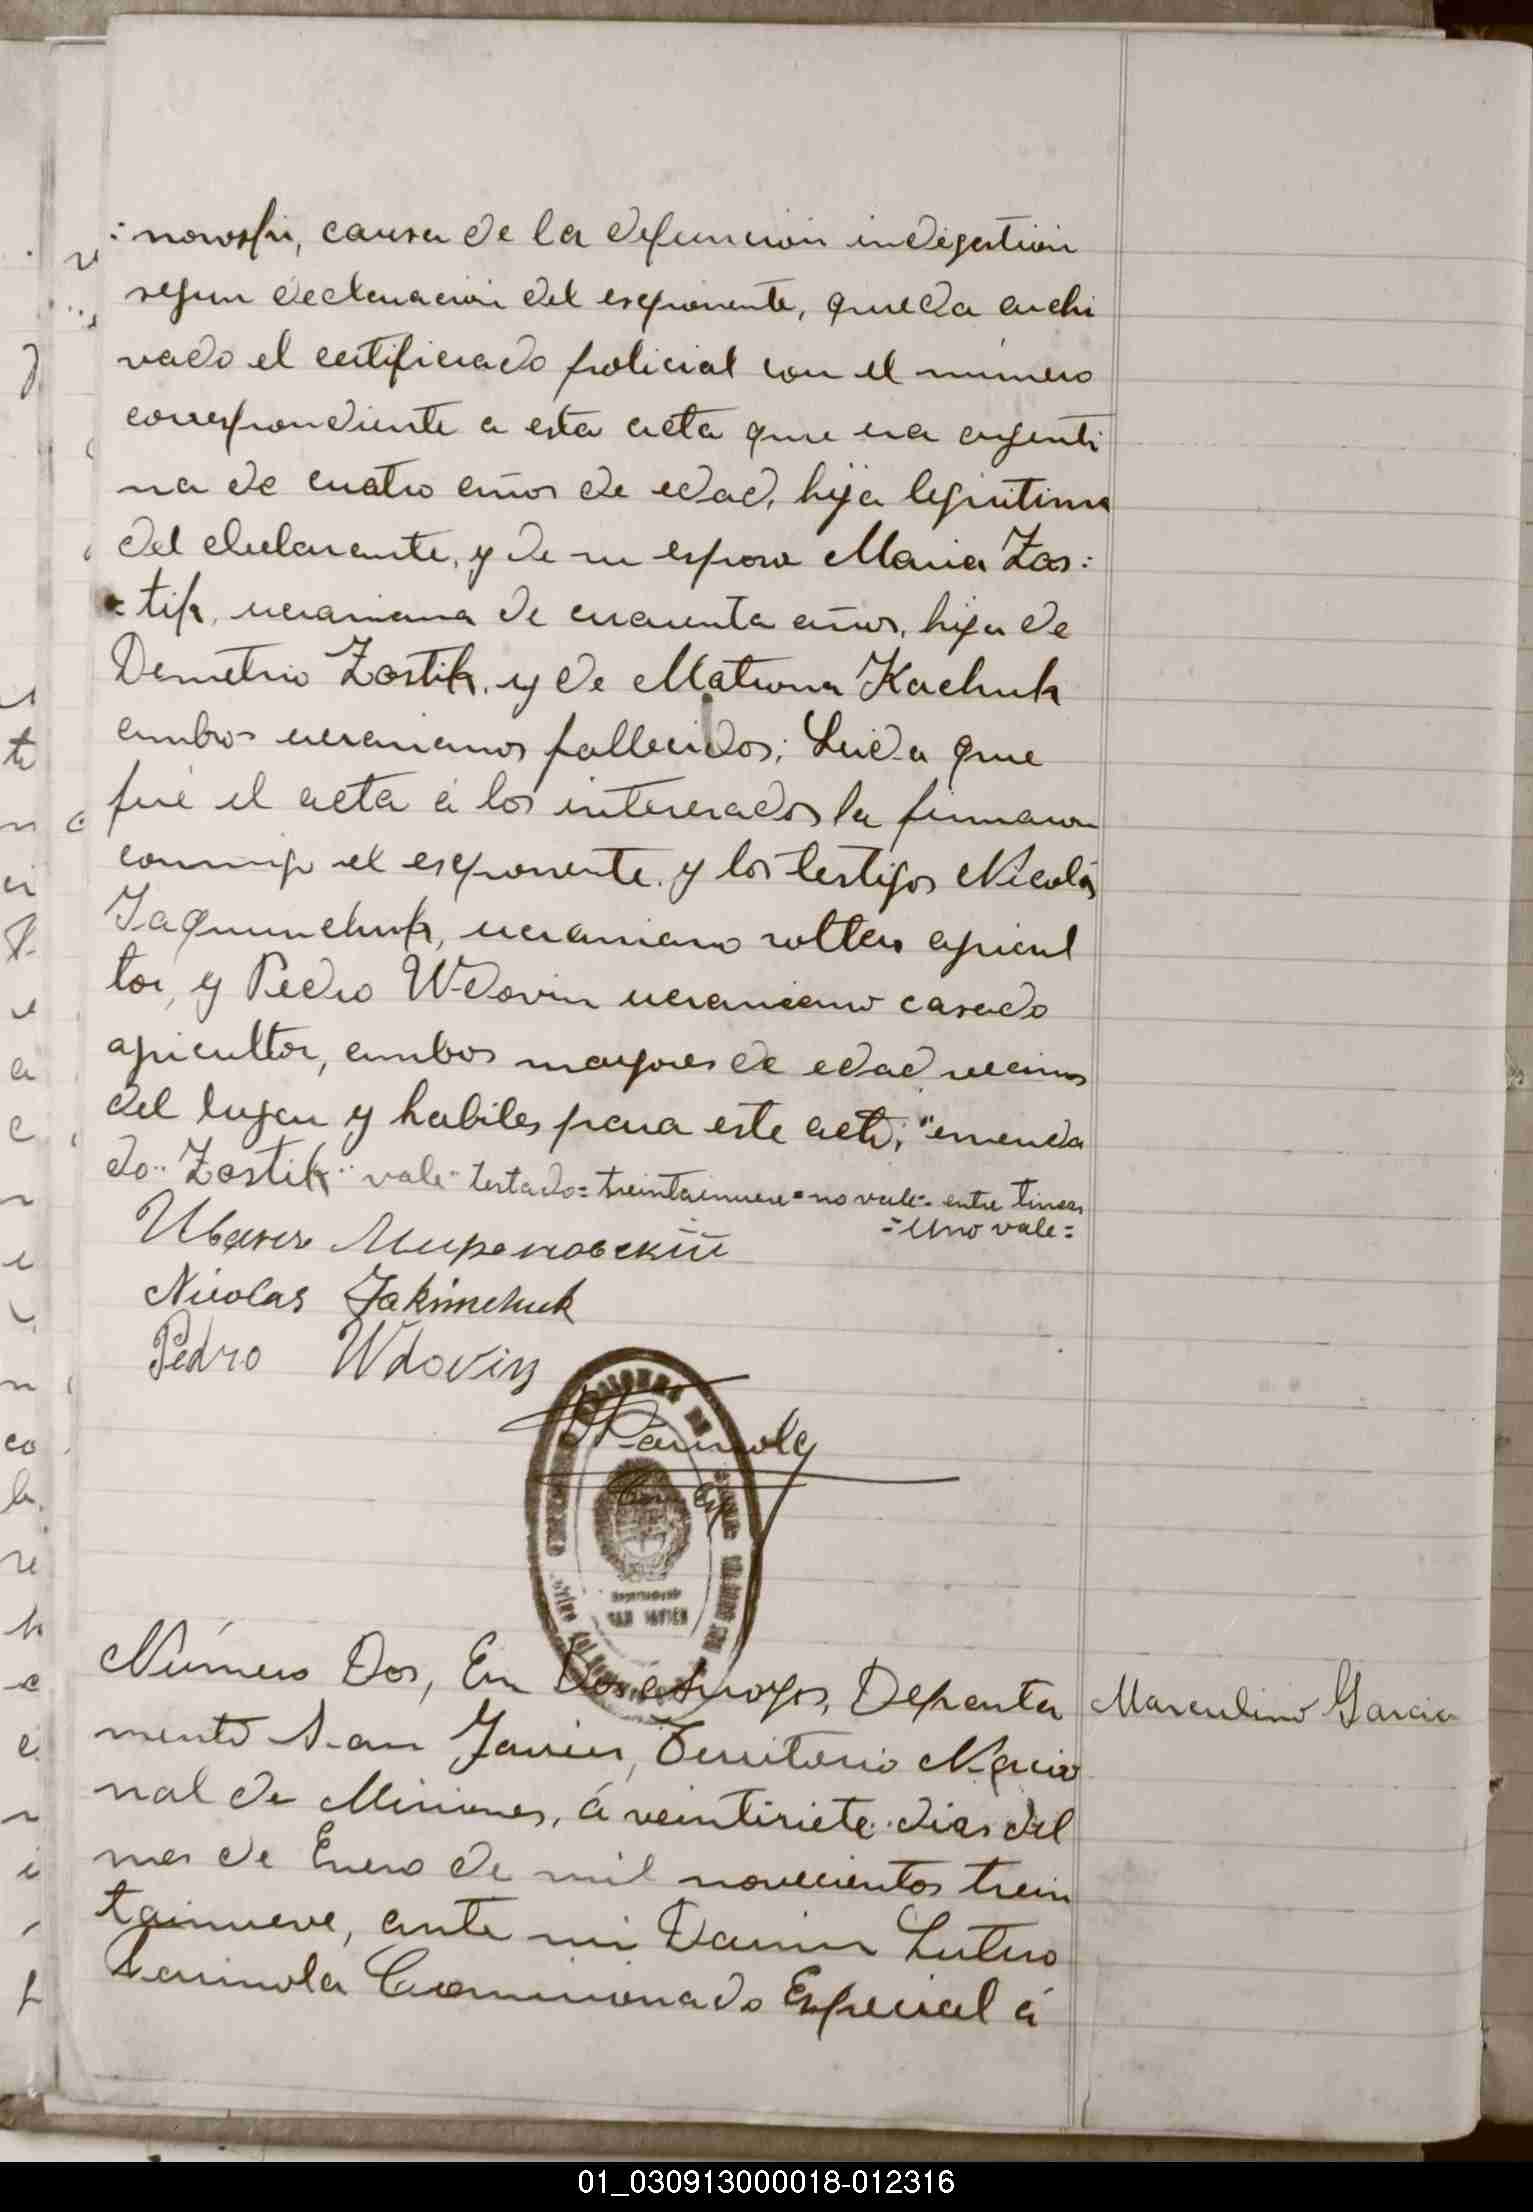 :nowski, causa de la defunción indigestión
segun declaración del exponente, queda archi
vado el certificado policial con el número
correspondiente a esta acta que era argenti
na de cuatro años de edad, hija legitima
del declarante, y de su esposa Maria Zos:
=tik, ucraniana de cuarenta años, hija de
Demetrio Zostik, y de Matrona Kachuk
ambos ucranianos fallecidos; Leida que
fué el acta á los interesados la firmaron
conmigo el exponente y los testigos Nicolás
Iaquimchuk, ucraniano soltero agricul
tor, y Pedro Wdovin ucraniano casado
agricultor, ambos mayores de edad vecinos
del lugar y habiles para este acto; "enmenda
do" Zostik" vale" testado=treintainueve=no vale=entre lineas
=Uno vale=
Иванъ Мироновский
Nicolas Jakimchuk
Pedro Wdovin
SAN JAVIER
Número Dos, En Dos Arroyos, Departa
mento San Javier, Territorio Nacio
nal de Misiones, á veintisiete dias del
mes de Enero de mil novecientos trein
tainueve, ante mi Lutero
Comisionado Especial á
Marculino Garcia
01_030913000018-012316